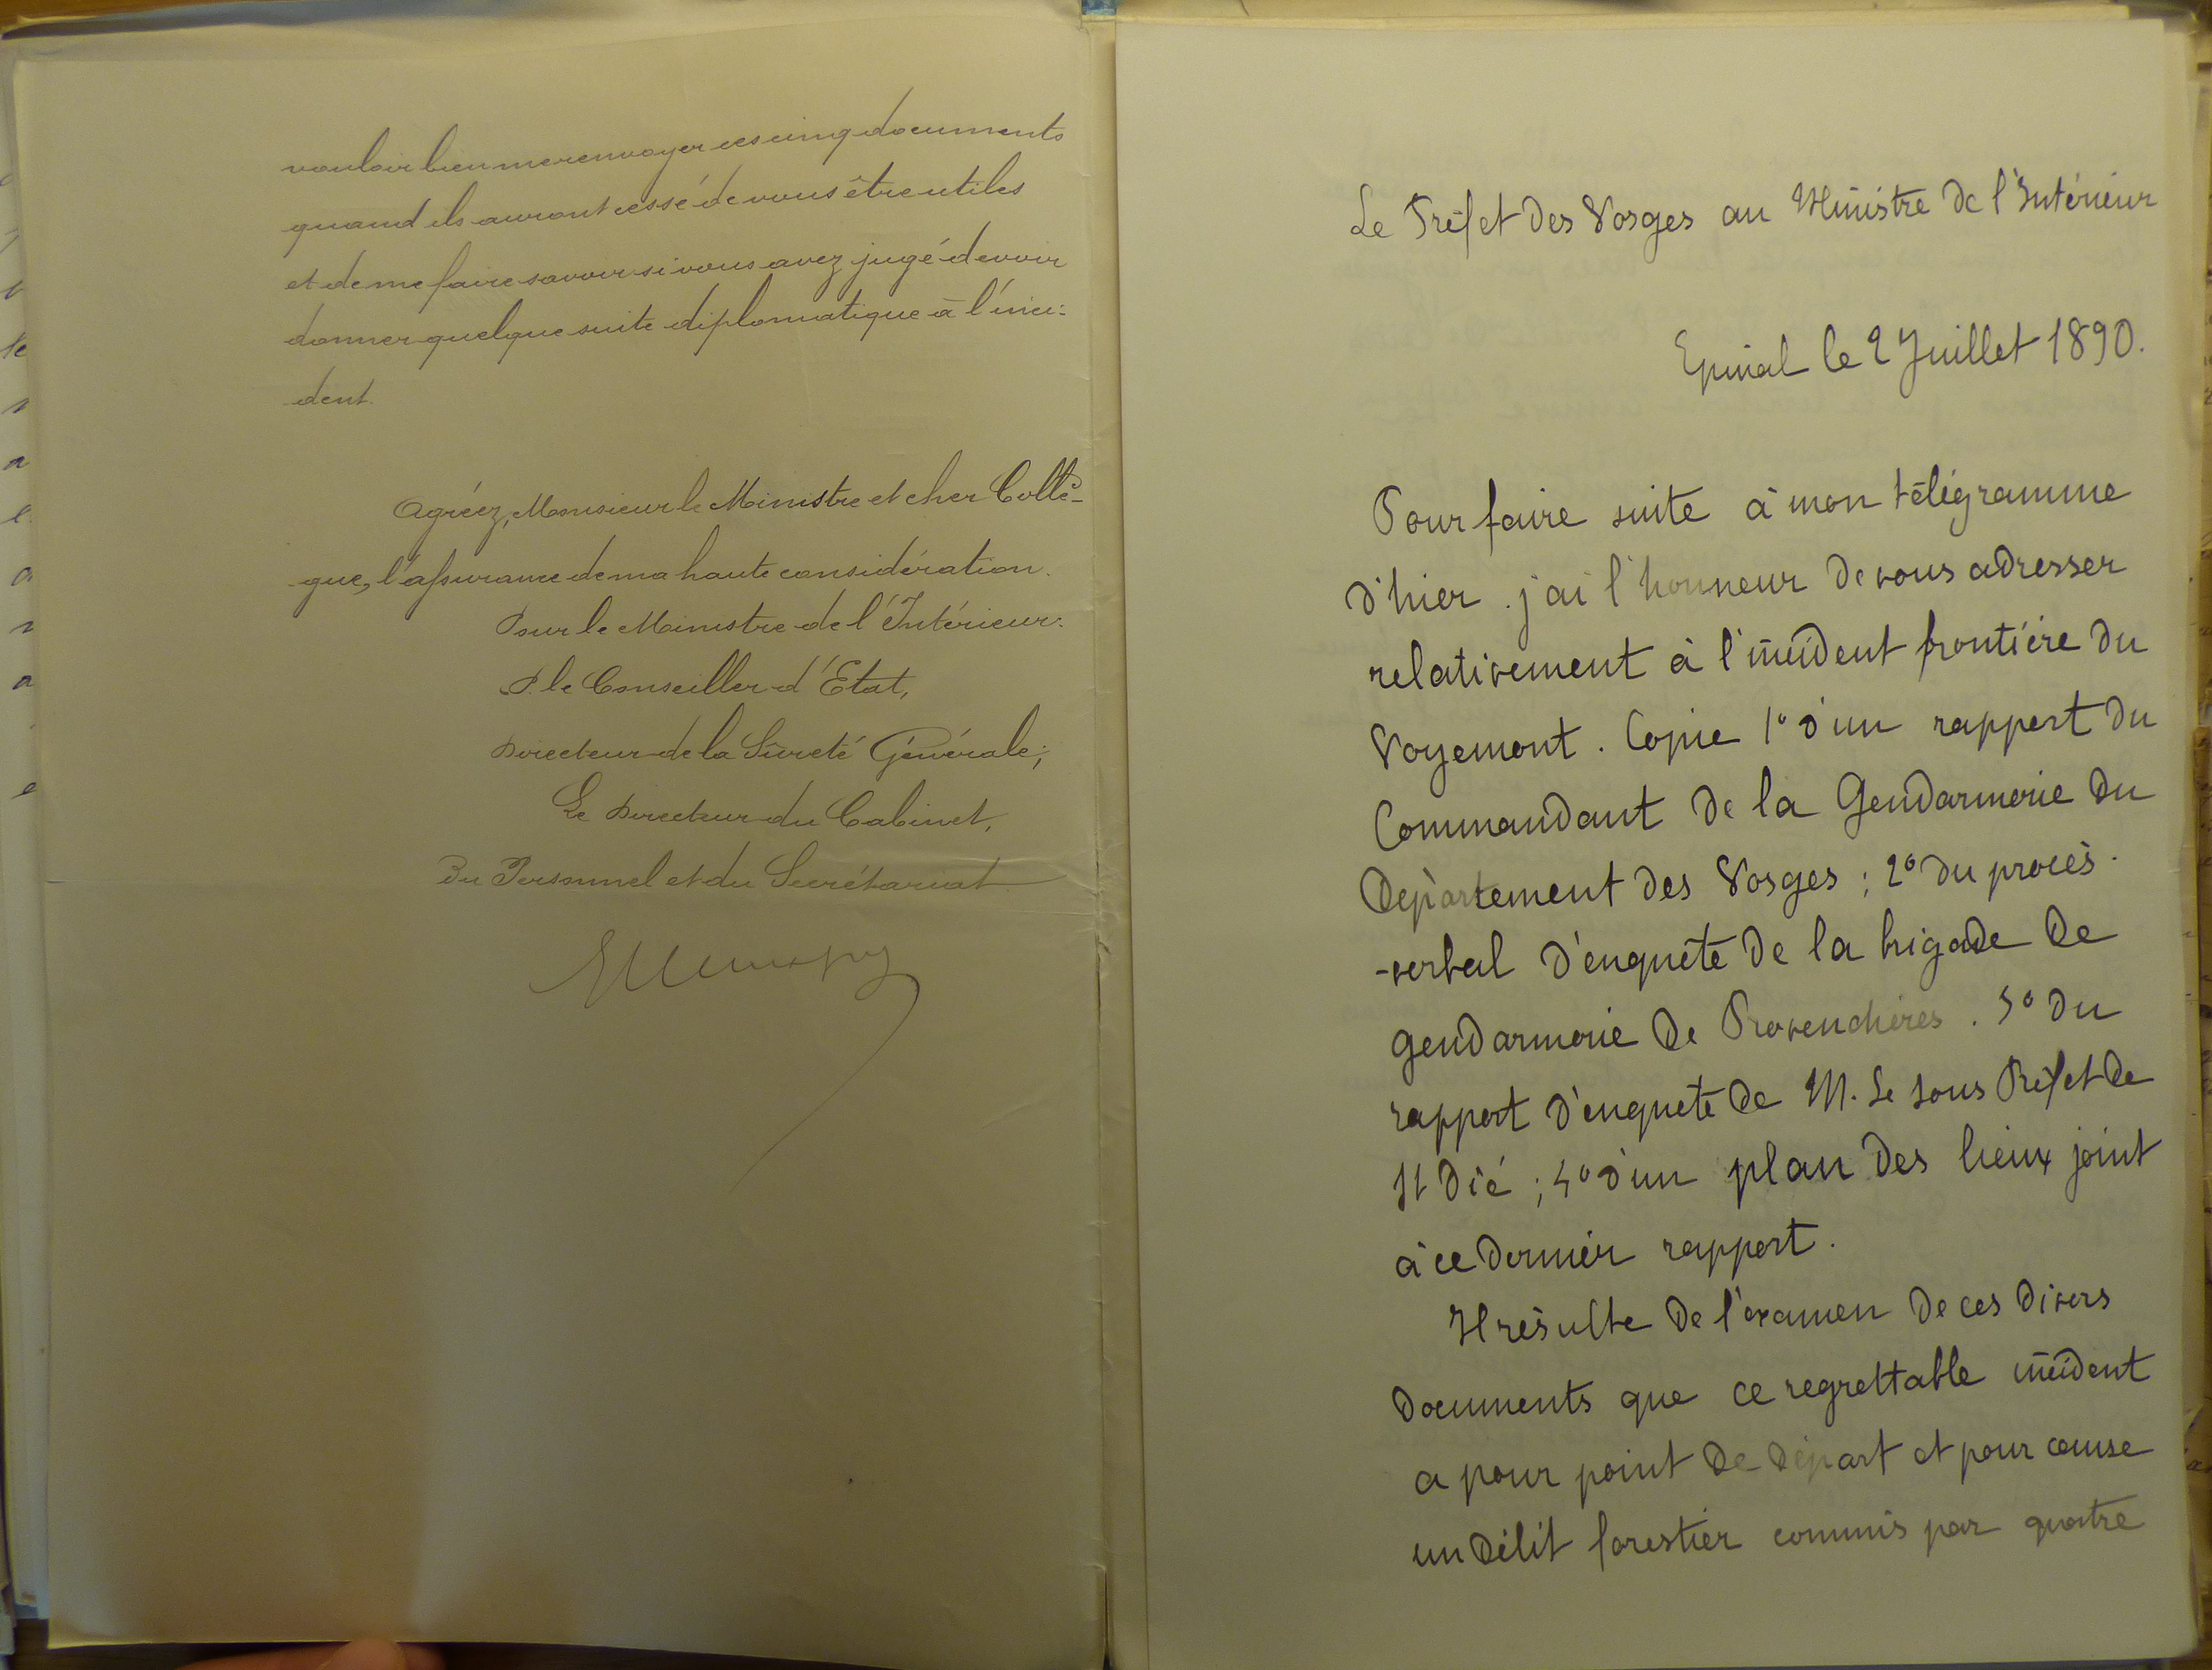 vouloir bien me renvoyer ces cinq documents
quand ils auront cessé de vous être utiles
et de me faire savoir si vous avez jugé devoir
donner quelque suite diplomatique à l'inci-
dent.
Agréez, Monsieur le Ministre et cher Collè-
gue, l'assurance de ma haute considération.
Pour le Ministre de l'Intérieur:
P. le Conseiller d'Etat,
Directeur de la Sûreté Générale;
Le Directeur du Cabinet,
Du Personnel et du Secrétariat
Le Préfet des Vosges au Ministre de l'Intérieur
Epinal le 2 Juillet 1890.
Pour faire suite à mon télégramme
d'hier. j'ai l'honneur de vous adresser
relativement à l'incident frontière du
Voyemont. Copie 1° d'un rapport du
Commandant de la Gendarmerie du
Département des Vosges ; 2° du procès-
-verbal d'enquête de la brigade de
gendarmerie de Provenchères. 3° du
rapport d'enquête de M. le sous Préfet de
St Dié ; 4° d'un plan des lieux joint
à ce dernier rapport.
Il résulte de l'examen de ces divers
documents que ce regrettable incident
a pour point de départ et pour cause
un délit forestier commis par quatre